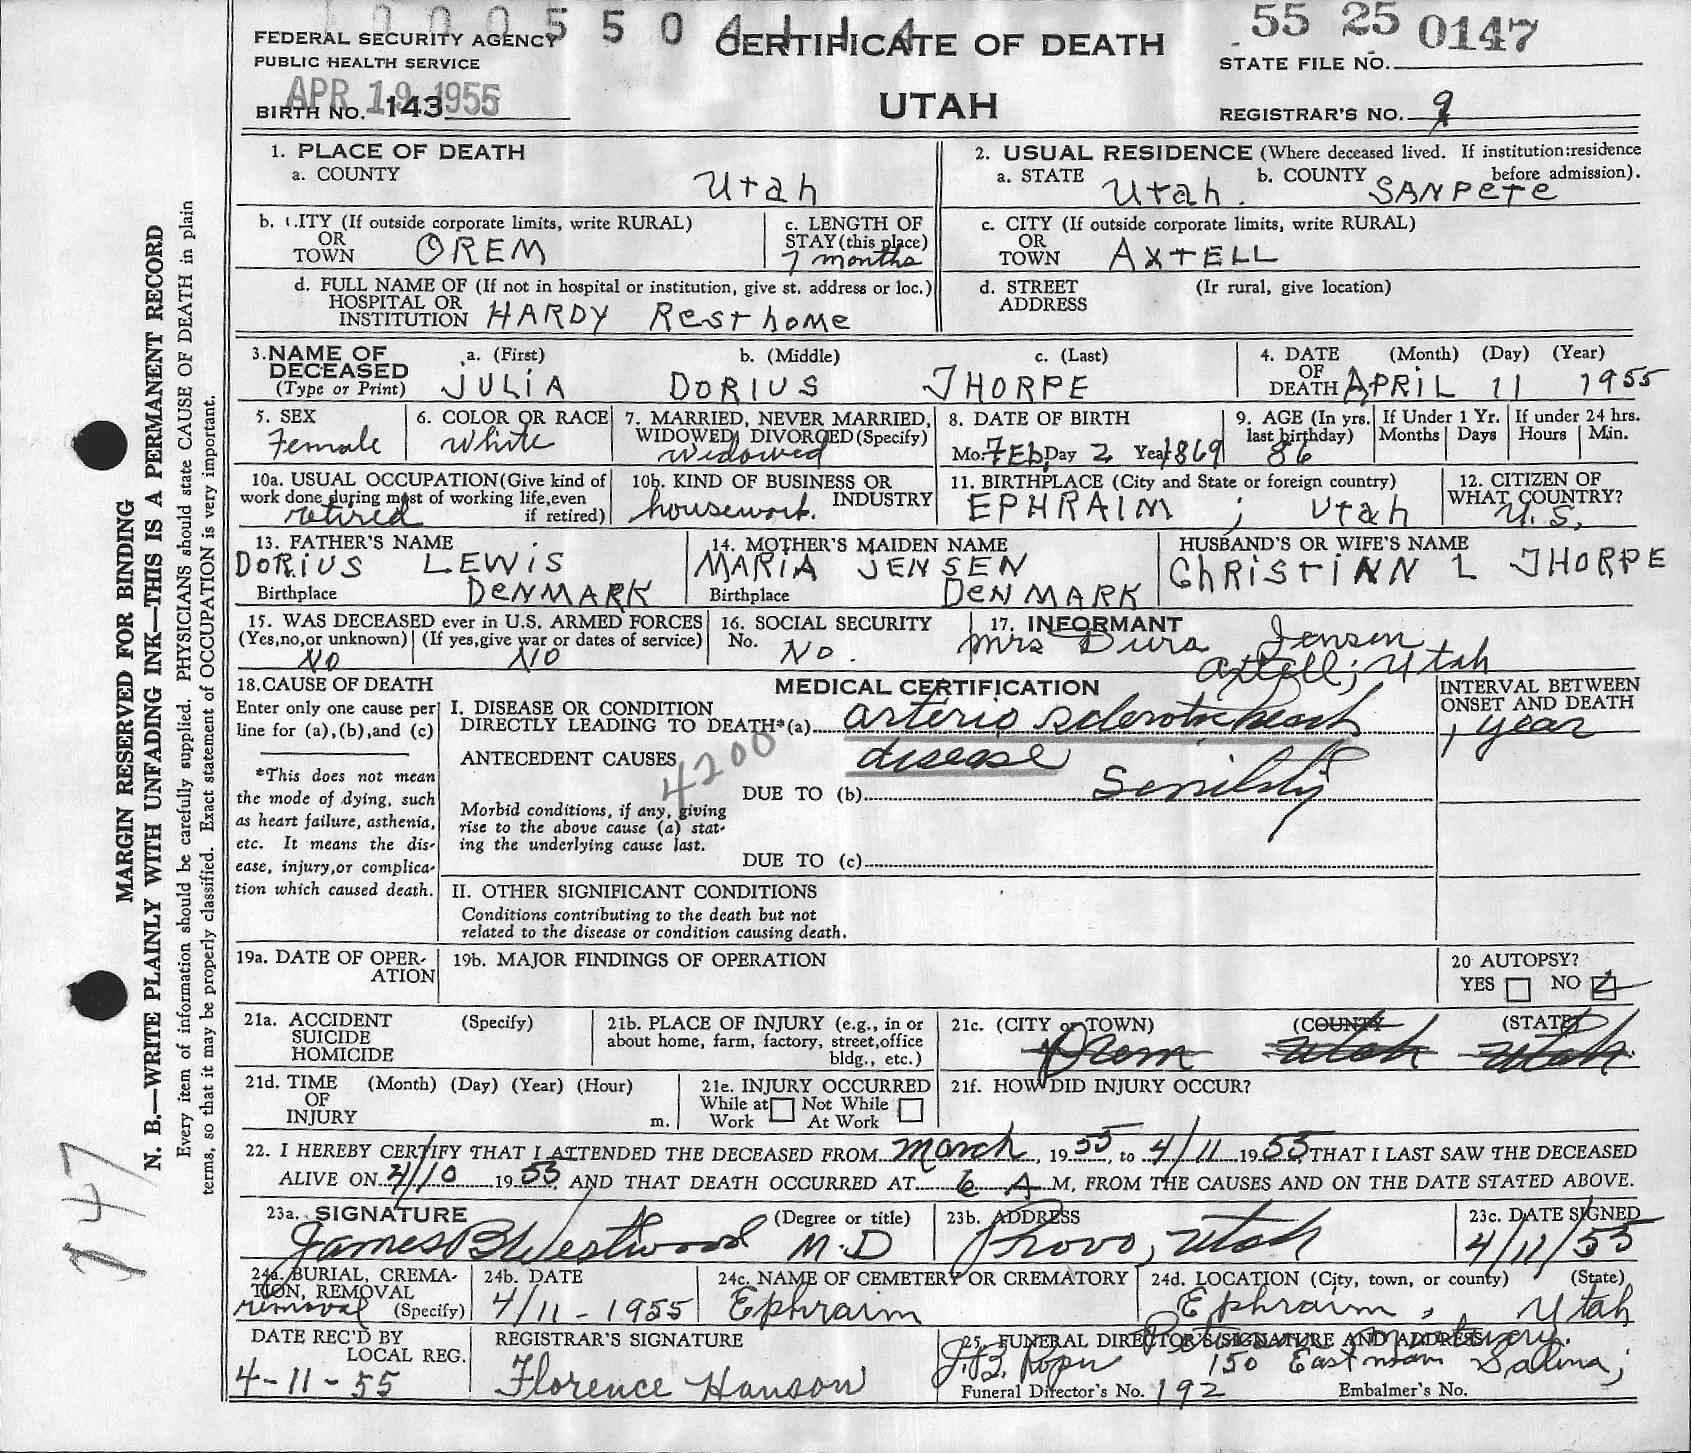 10005504114
55 25 0147
FEDERAL SECURITY AGENCY
PUBLIC HEALTH SERVICE
CERTIFICATE OF DEATH
UTAH
STATE FILE NO.
APR 19 1955
BIRTH NO. 143
REGISTRAR'S NO. 9
1. PLACE OF DEATH
a. COUNTY Utah
2. USUAL RESIDENCE (Where deceased lived. If institution:residence before admission).
a. STATE Utah. b. COUNTY SANPETE
b. CITY (If outside corporate limits, write RURAL)
OR
TOWN OREM
c. LENGTH OF
STAY (this place)
7 months
c. CITY (If outside corporate limits, write RURAL)
OR
TOWN AXTELL
d. FULL NAME OF (If not in hospital or institution, give st. address or loc.)
HOSPITAL OR
INSTITUTION HARDY Rest home
d. STREET (If rural, give location)
ADDRESS
3. NAME OF DECEASED
(Type or Print)
a. (First) JULIA
b. (Middle) DORIUS
c. (Last) THORPE
4. DATE (Month) (Day) (Year)
OF
DEATH APRIL 11 1955
5. SEX
Female
6. COLOR OR RACE
White
7. MARRIED, NEVER MARRIED,
WIDOWED, DIVORCED (Specify)
Widowed
8. DATE OF BIRTH
Mo. Feb. Day 2 Year 1869
9. AGE (In yrs. last birthday)
86
If Under 1 Yr.
Months Days
If under 24 hrs.
Hours Min.
10a. USUAL OCCUPATION (Give kind of
work done during most of working life, even
if retired)
retired
10b. KIND OF BUSINESS OR
INDUSTRY
housework.
11. BIRTHPLACE (City and State or foreign country)
EPHRAIM ; Utah
12. CITIZEN OF
WHAT COUNTRY?
U.S.
13. FATHER'S NAME
DORIUS LEWIS
Birthplace DENMARK
14. MOTHER'S MAIDEN NAME
MARIA JENSEN
Birthplace DENMARK
HUSBAND'S OR WIFE'S NAME
ChRiStiNN L THORPE
15. WAS DECEASED ever in U.S. ARMED FORCES
(Yes,no,or unknown) (If yes,give war or dates of service)
NO NO
16. SOCIAL SECURITY
No. No.
17. INFORMANT
Mrs Dura Jensen
Axtell; Utah
18. CAUSE OF DEATH
Enter only one cause per
line for (a), (b), and (c)
*This does not mean
the mode of dying, such
as heart failure, asthenia,
etc. It means the dis-
ease, injury, or complica-
tion which caused death.
MEDICAL CERTIFICATION
INTERVAL BETWEEN
ONSET AND DEATH
I. DISEASE OR CONDITION
DIRECTLY LEADING TO DEATH*(a) arterio sclerotic heart
disease
1 year
ANTECEDENT CAUSES
4200
DUE TO (b) Senility
Morbid conditions, if any, giving
rise to the above cause (a) stat-
ing the underlying cause last.
DUE TO (c)
II. OTHER SIGNIFICANT CONDITIONS
Conditions contributing to the death but not
related to the disease or condition causing death.
19a. DATE OF OPER-
ATION
19b. MAJOR FINDINGS OF OPERATION
20 AUTOPSY?
YES NO
21a. ACCIDENT (Specify)
SUICIDE
HOMICIDE
21b. PLACE OF INJURY (e.g., in or
about home, farm, factory, street, office
bldg., etc.)
21c. (CITY or TOWN) (COUNTY) (STATE)
Orem Utah Utah
21d. TIME (Month) (Day) (Year) (Hour)
OF
INJURY m.
21e. INJURY OCCURRED
While at Work Not While At Work
21f. HOW DID INJURY OCCUR?
22. I HEREBY CERTIFY THAT I ATTENDED THE DECEASED FROM March, 1955, to 4/11 1955, THAT I LAST SAW THE DECEASED
ALIVE ON 4/10 1955, AND THAT DEATH OCCURRED AT 6 A M, FROM THE CAUSES AND ON THE DATE STATED ABOVE.
23a. SIGNATURE (Degree or title)
James B Westwood M.D
23b. ADDRESS
Provo, Utah
23c. DATE SIGNED
4/11/55
24a. BURIAL, CREMA-
TION, REMOVAL
(Specify)
removal
24b. DATE
4/11-1955
24c. NAME OF CEMETERY OR CREMATORY
Ephraim
24d. LOCATION (City, town, or county) (State)
Ephraim, Utah
DATE REC'D BY
LOCAL REG.
4-11-55
REGISTRAR'S SIGNATURE
Florence Hanson
25. FUNERAL DIRECTOR'S SIGNATURE AND ADDRESS
mortuary.
150 East main Salina;
Funeral Director's No. 192 Embalmer's No.
MARGIN RESERVED FOR BINDING
N. B.—WRITE PLAINLY WITH UNFADING INK—THIS IS A PERMANENT RECORD
Every item of information should be carefully supplied. PHYSICIANS should state CAUSE OF DEATH in plain
terms, so that it may be properly classified. Exact statement of OCCUPATION is very important.
147